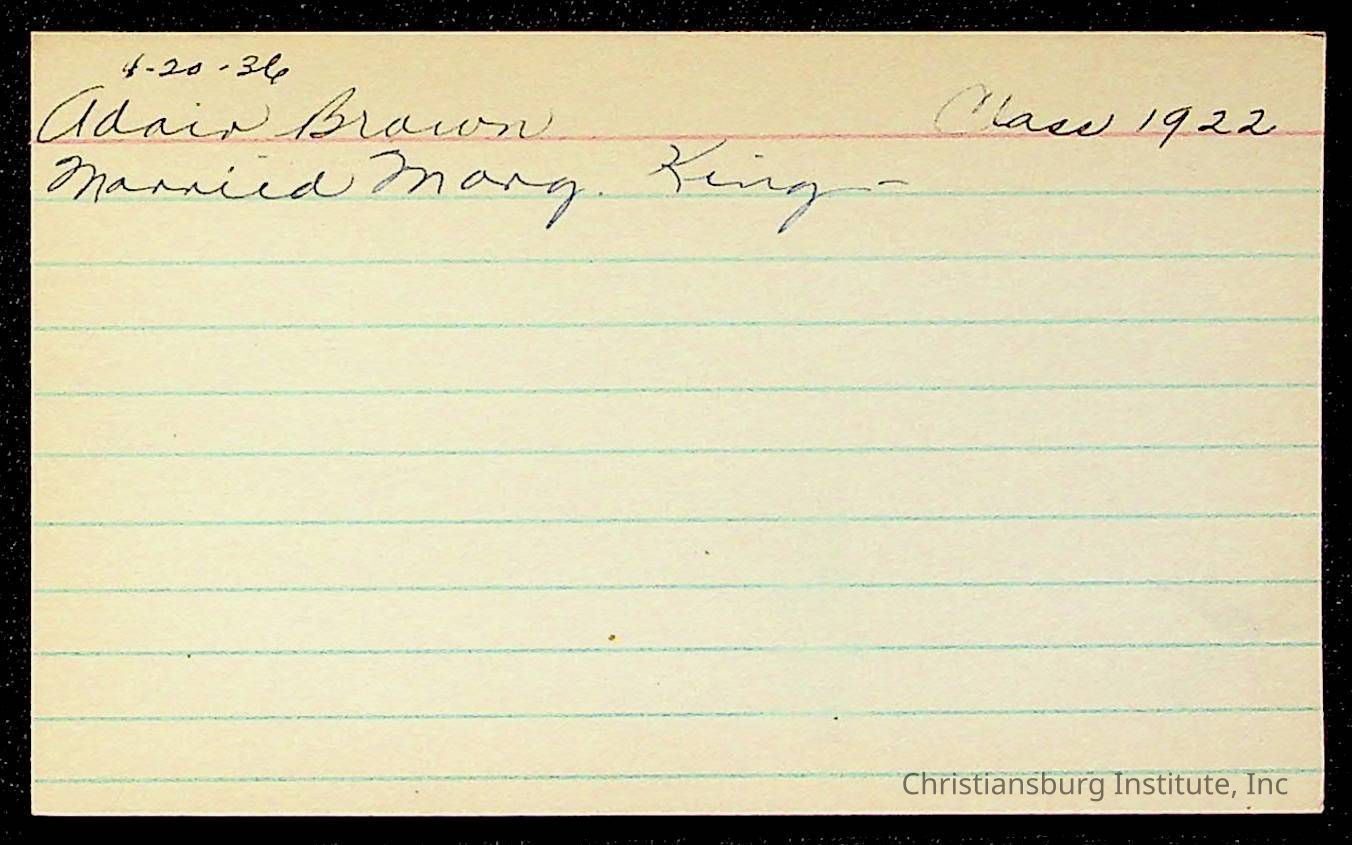 4-20-36
Adair Brown Class 1922
Married Marg. King-
Christiansburg Institute, Inc